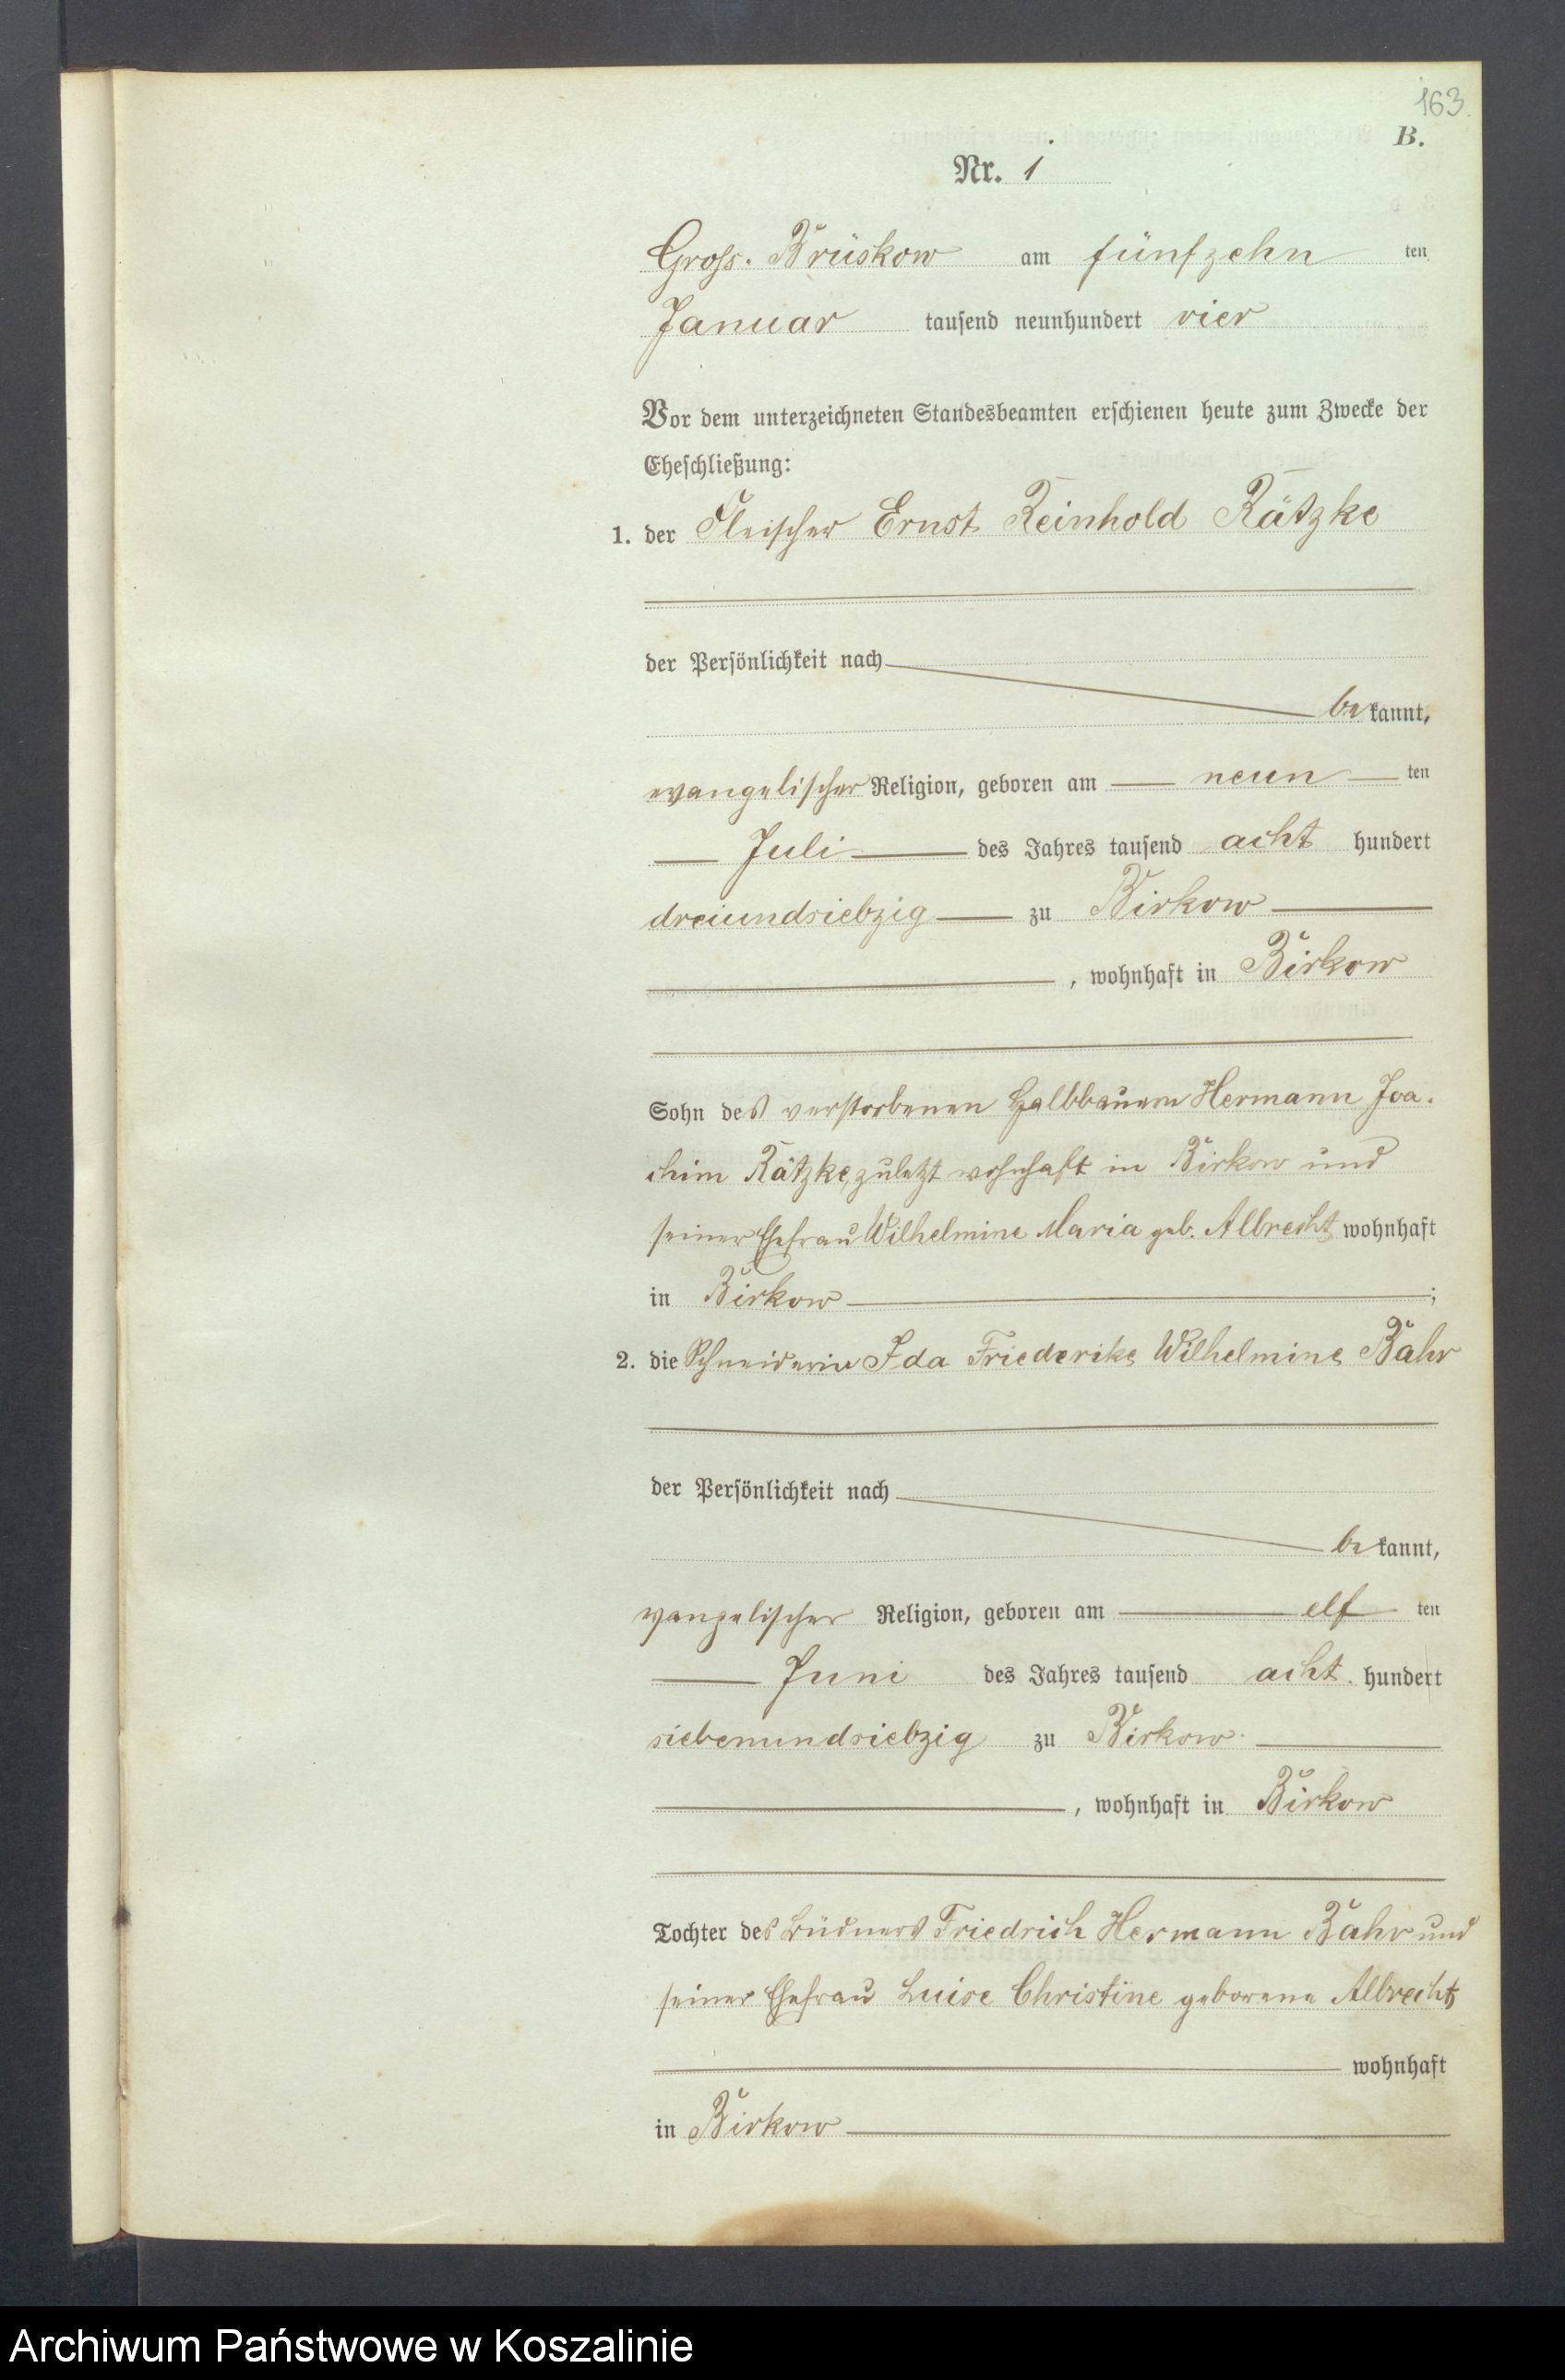 163.
B.
Nr. 1
Gross. Brüskow am fünfzehn ten
Januar tausend neunhundert vier
Vor dem unterzeichneten Standesbeamten erschienen heute zum Zwecke der
Eheschließung:
1. der Fleischer Ernst Reinhold Rätzke
der Persönlichkeit nach
be kannt,
evangelischer Religion, geboren am neun ten
Juli des Jahres tausend acht hundert
dreiundsiebzig zu Birkow
, wohnhaft in Birkow
Sohn des verstorbenen Halbbauern Hermann Joa-
chim Rätzke, zuletzt wohnhaft in Birkow und
seiner Ehefrau Wilhelmine Maria geb. Albrecht wohnhaft
in Birkow ;
2. die Schneiderin Ida Friederike Wilhelmine Bahr
der Persönlichkeit nach
be kannt,
evangelischer Religion, geboren am elf ten
Juni des Jahres tausend acht hundert
siebenundsiebzig zu Birkow
, wohnhaft in Birkow
Tochter des Büdners Friedrich Hermann Bahr und
seiner Ehefrau Luise Christine geborene Albrecht
wohnhaft
in Birkow
Archiwum Państwowe w Koszalinie